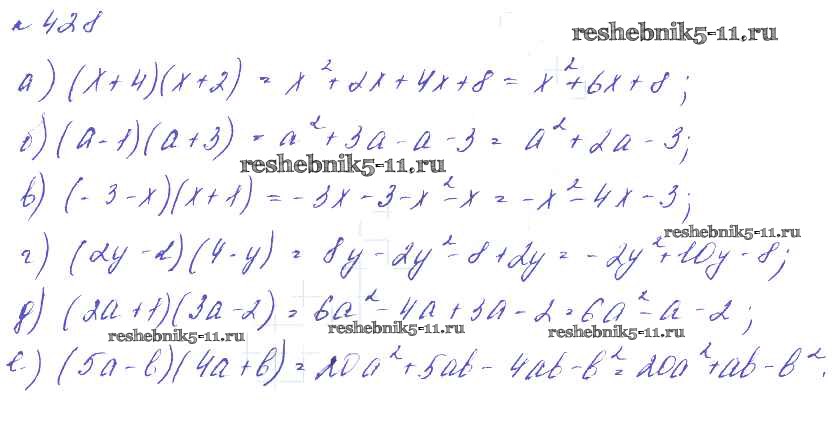 № 428
reshebnik5-11.ru
а) (x+4)(x+2) = x²+2x+4x+8 = x²+6x+8;
б) (a-1)(a+3) = a²+3a-a-3 = a²+2a-3;
reshebnik5-11.ru
в) (-3-x)(x+1) = -3x-3-x²-x = -x²-4x-3;
reshebnik5-11.ru
г) (2y-2)(4-y) = 8y-2y²-8+2y = -2y²+10y-8;
д) (2a+1)(3a-2) = 6a²-4a+3a-2 = 6a²-a-2;
reshebnik5-11.ru reshebnik5-11.ru reshebnik5-11.ru
е) (5a-b)(4a+b) = 20a²+5ab-4ab-b² = 20a²+ab-b².